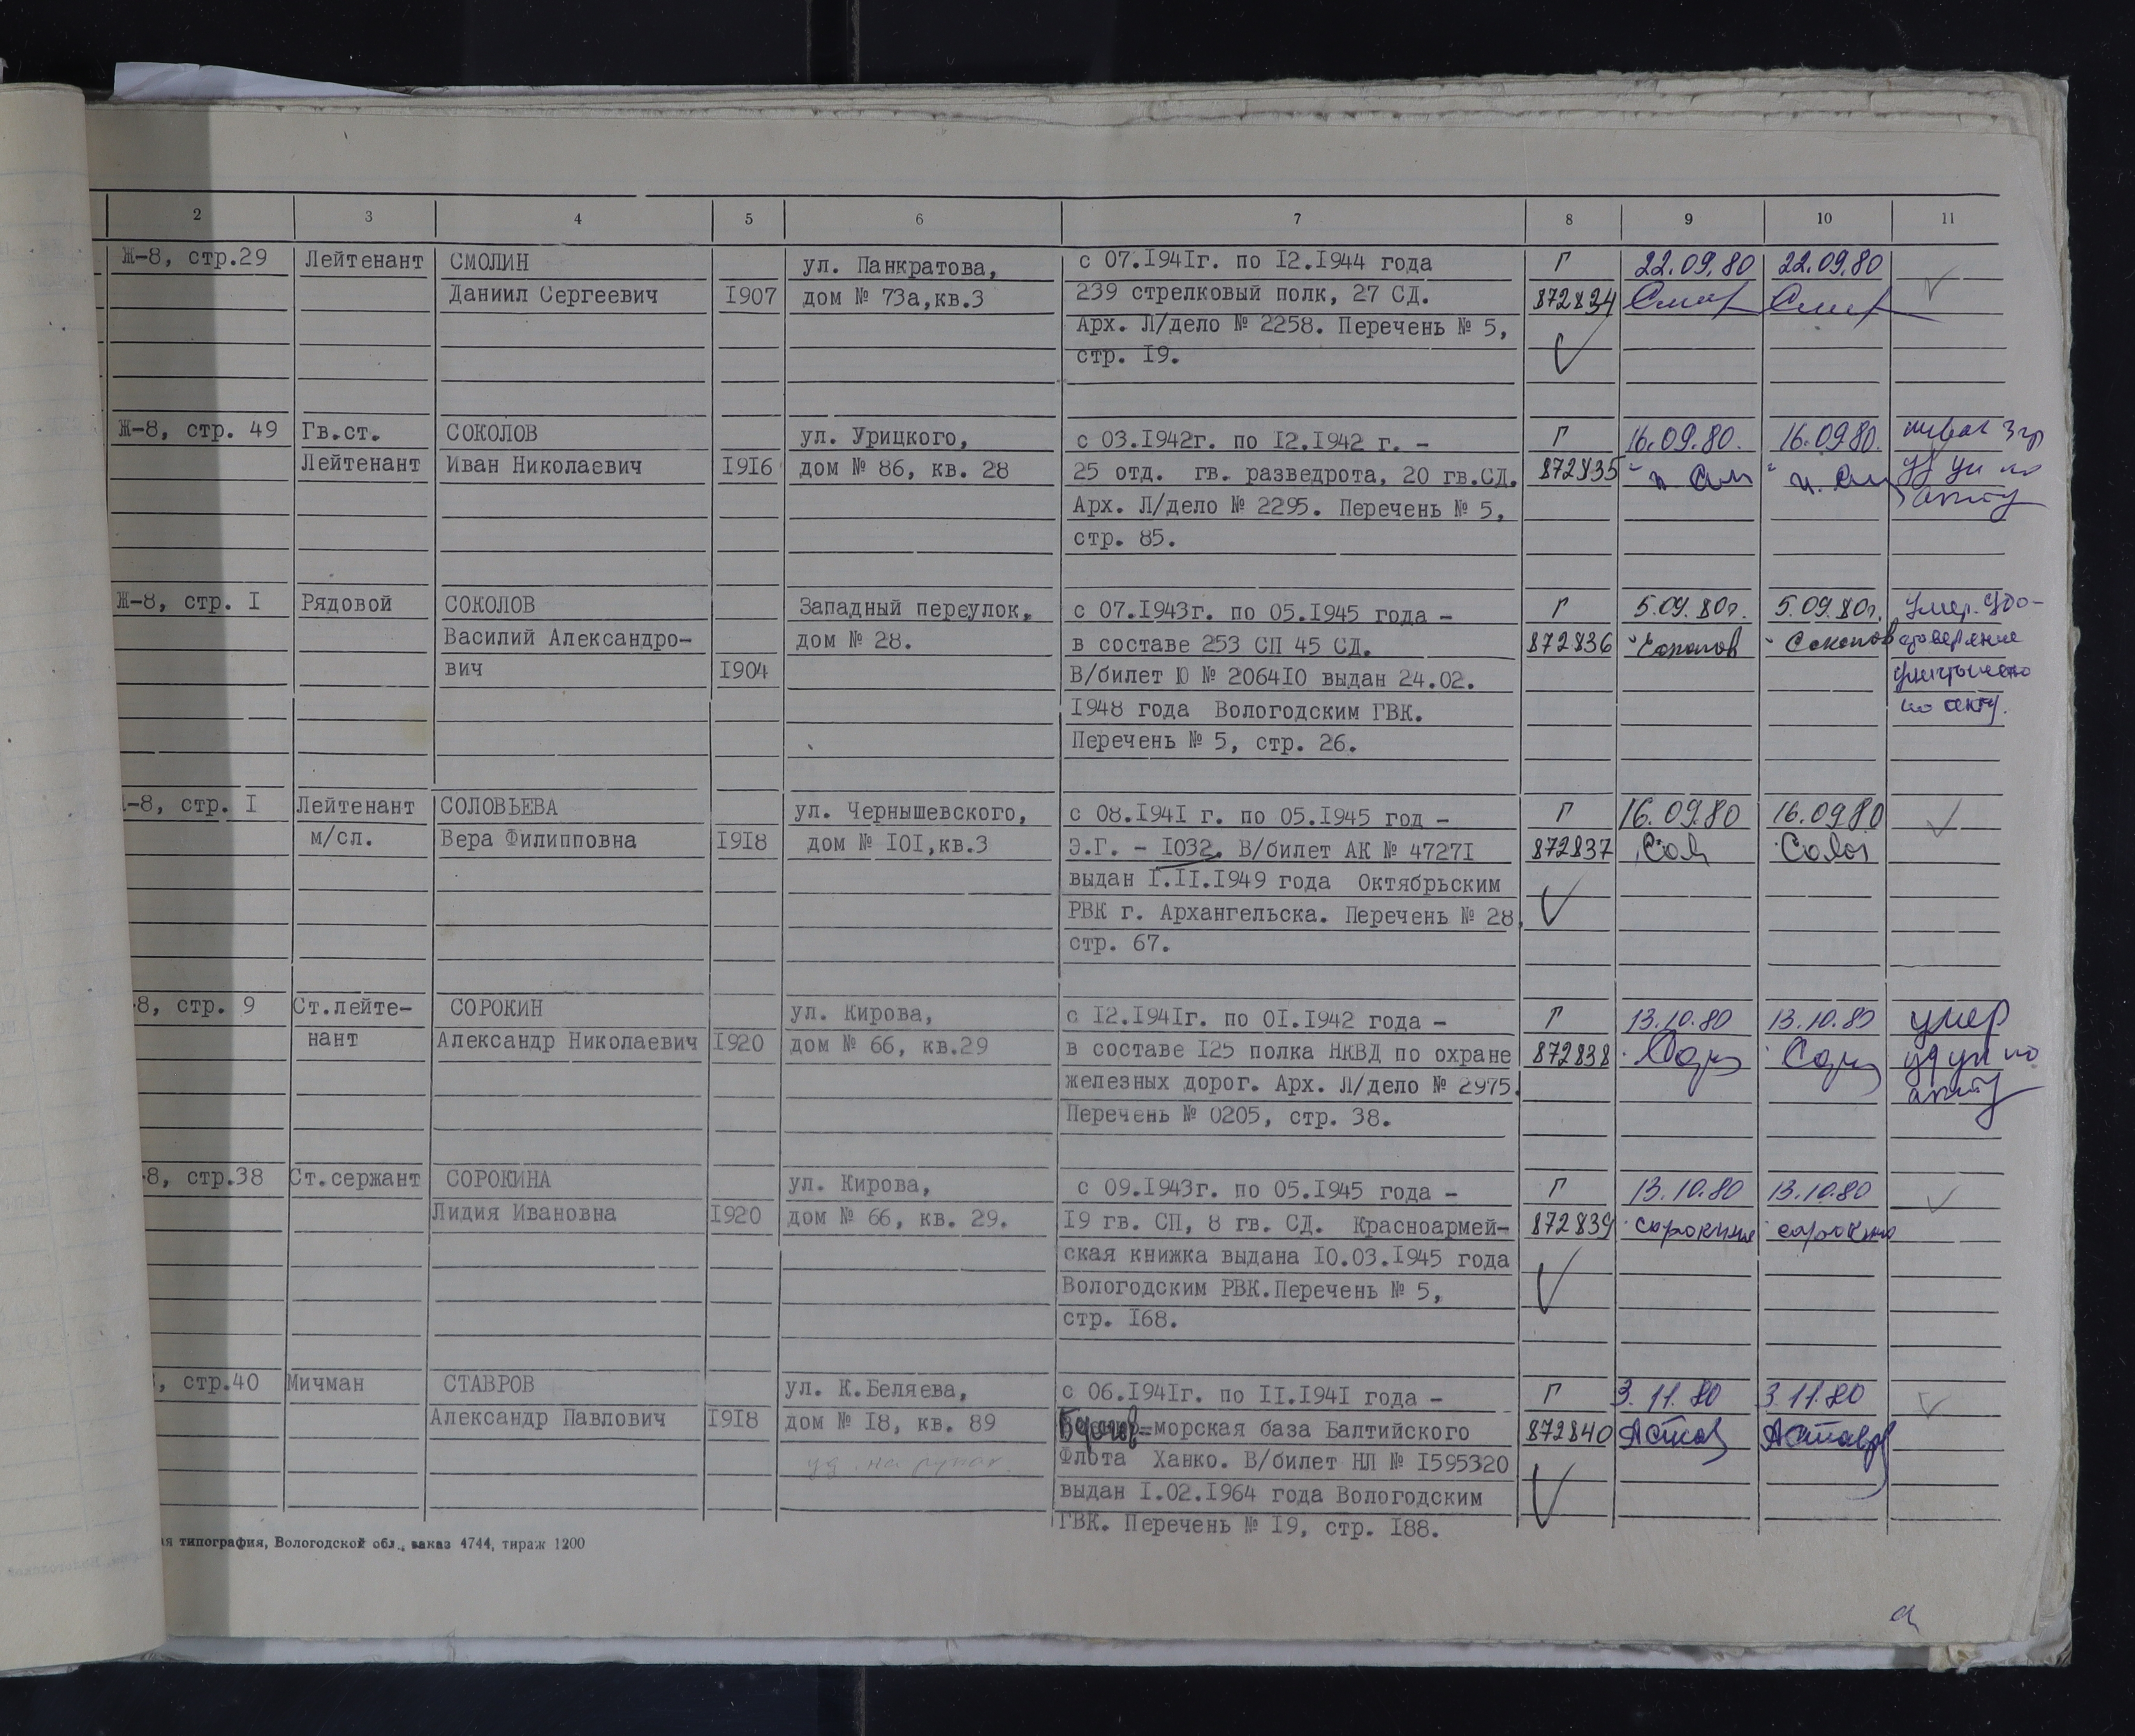 2 3 4 5 6 7 8 9 10 11
Ж-8, стр.29 Лейтенант СМОЛИН ул. Панкратова, с 07.I941г. по I2.I944 года Г 22.09.80 22.09.80
Даниил Сергеевич I907 дом № 73а,кв.3 239 стрелковый полк, 27 СД. 872834
Арх. Л/дело № 2258. Перечень № 5,
стр. I9.
Ж-8, стр. 49 Гв.ст. СОКОЛОВ ул. Урицкого, с 03.I942г. по I2.I942 г. - Г 16.09.80. 16.09.80.
Лейтенант Иван Николаевич I9I6 дом № 86, кв. 28 25 отд. гв. разведрота, 20 гв.СД. 872835
Арх. Л/дело № 2295. Перечень № 5, акту
стр. 85.
Ж-8, стр. I Рядовой СОКОЛОВ Западный переулок, с 07.I943г. по 05.I945 года - Г 5.09.80г. 5.09.80г. Умер. Удо-
Василий Александро- дом № 28. в составе 253 СП 45 СД. 872836 Соколов Соколов стоверение
вич I904 В/билет Ю № 2064I0 выдан 24.02. уничтожено
I948 года Вологодским ГВК. по акту.
Перечень № 5, стр. 26.
-8, стр. I Лейтенант СОЛОВЬЕВА ул. Чернышевского, с 08.I94I г. по 05.I945 год - Г 16.09.80 16.09.80
м/сл. Вера Филипповна I9I8 дом № I0I,кв.3 Э.Г. - I032. В/билет АК № 4727I 872837 Сол Солов
выдан I.II.I949 года Октябрьским
РВК г. Архангельска. Перечень № 28,
стр. 67.
-8, стр. 9 Ст.лейте- СОРОКИН ул. Кирова, с I2.I94Iг. по 0I.I942 года - Г 13.10.80 13.10.80 умер
нант Александр Николаевич I920 дом № 66, кв.29 в составе I25 полка НКВД по охране 872838 уд ун по
железных дорог. Арх. Л/дело № 2975. акту
Перечень № 0205, стр. 38.
-8, стр.38 Ст.сержант СОРОКИНА ул. Кирова, с 09.I943г. по 05.I945 года - Г 13.10.80 13.10.80
Лидия Ивановна I920 дом № 66, кв. 29. I9 гв. СП, 8 гв. СД. Красноармей- 872839 Сорокина Сорокина
ская книжка выдана I0.03.I945 года
Вологодским РВК.Перечень № 5,
стр. I68.
, стр.40 Мичман СТАВРОВ ул. К.Беляева, с 06.I94Iг. по II.I94I года - Г 3.11.80 3.11.80
Александр Павлович I9I8 дом № I8, кв. 89 морская база Балтийского 872840 АСтав АСтавр
уд. на руках. Флота Ханко. В/билет НЛ № I595320
выдан I.02.I964 года Вологодским
ГВК. Перечень № I9, стр. I88.
ая типография, Вологодской обл., заказ 4744, тираж 1200